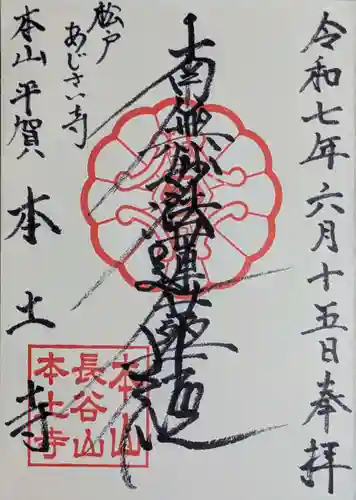 令和七年六月十五日奉拝
南無妙法蓮華経
松戸
あじさい寺
本山平賀
本土寺
大本山
長谷山
本土寺